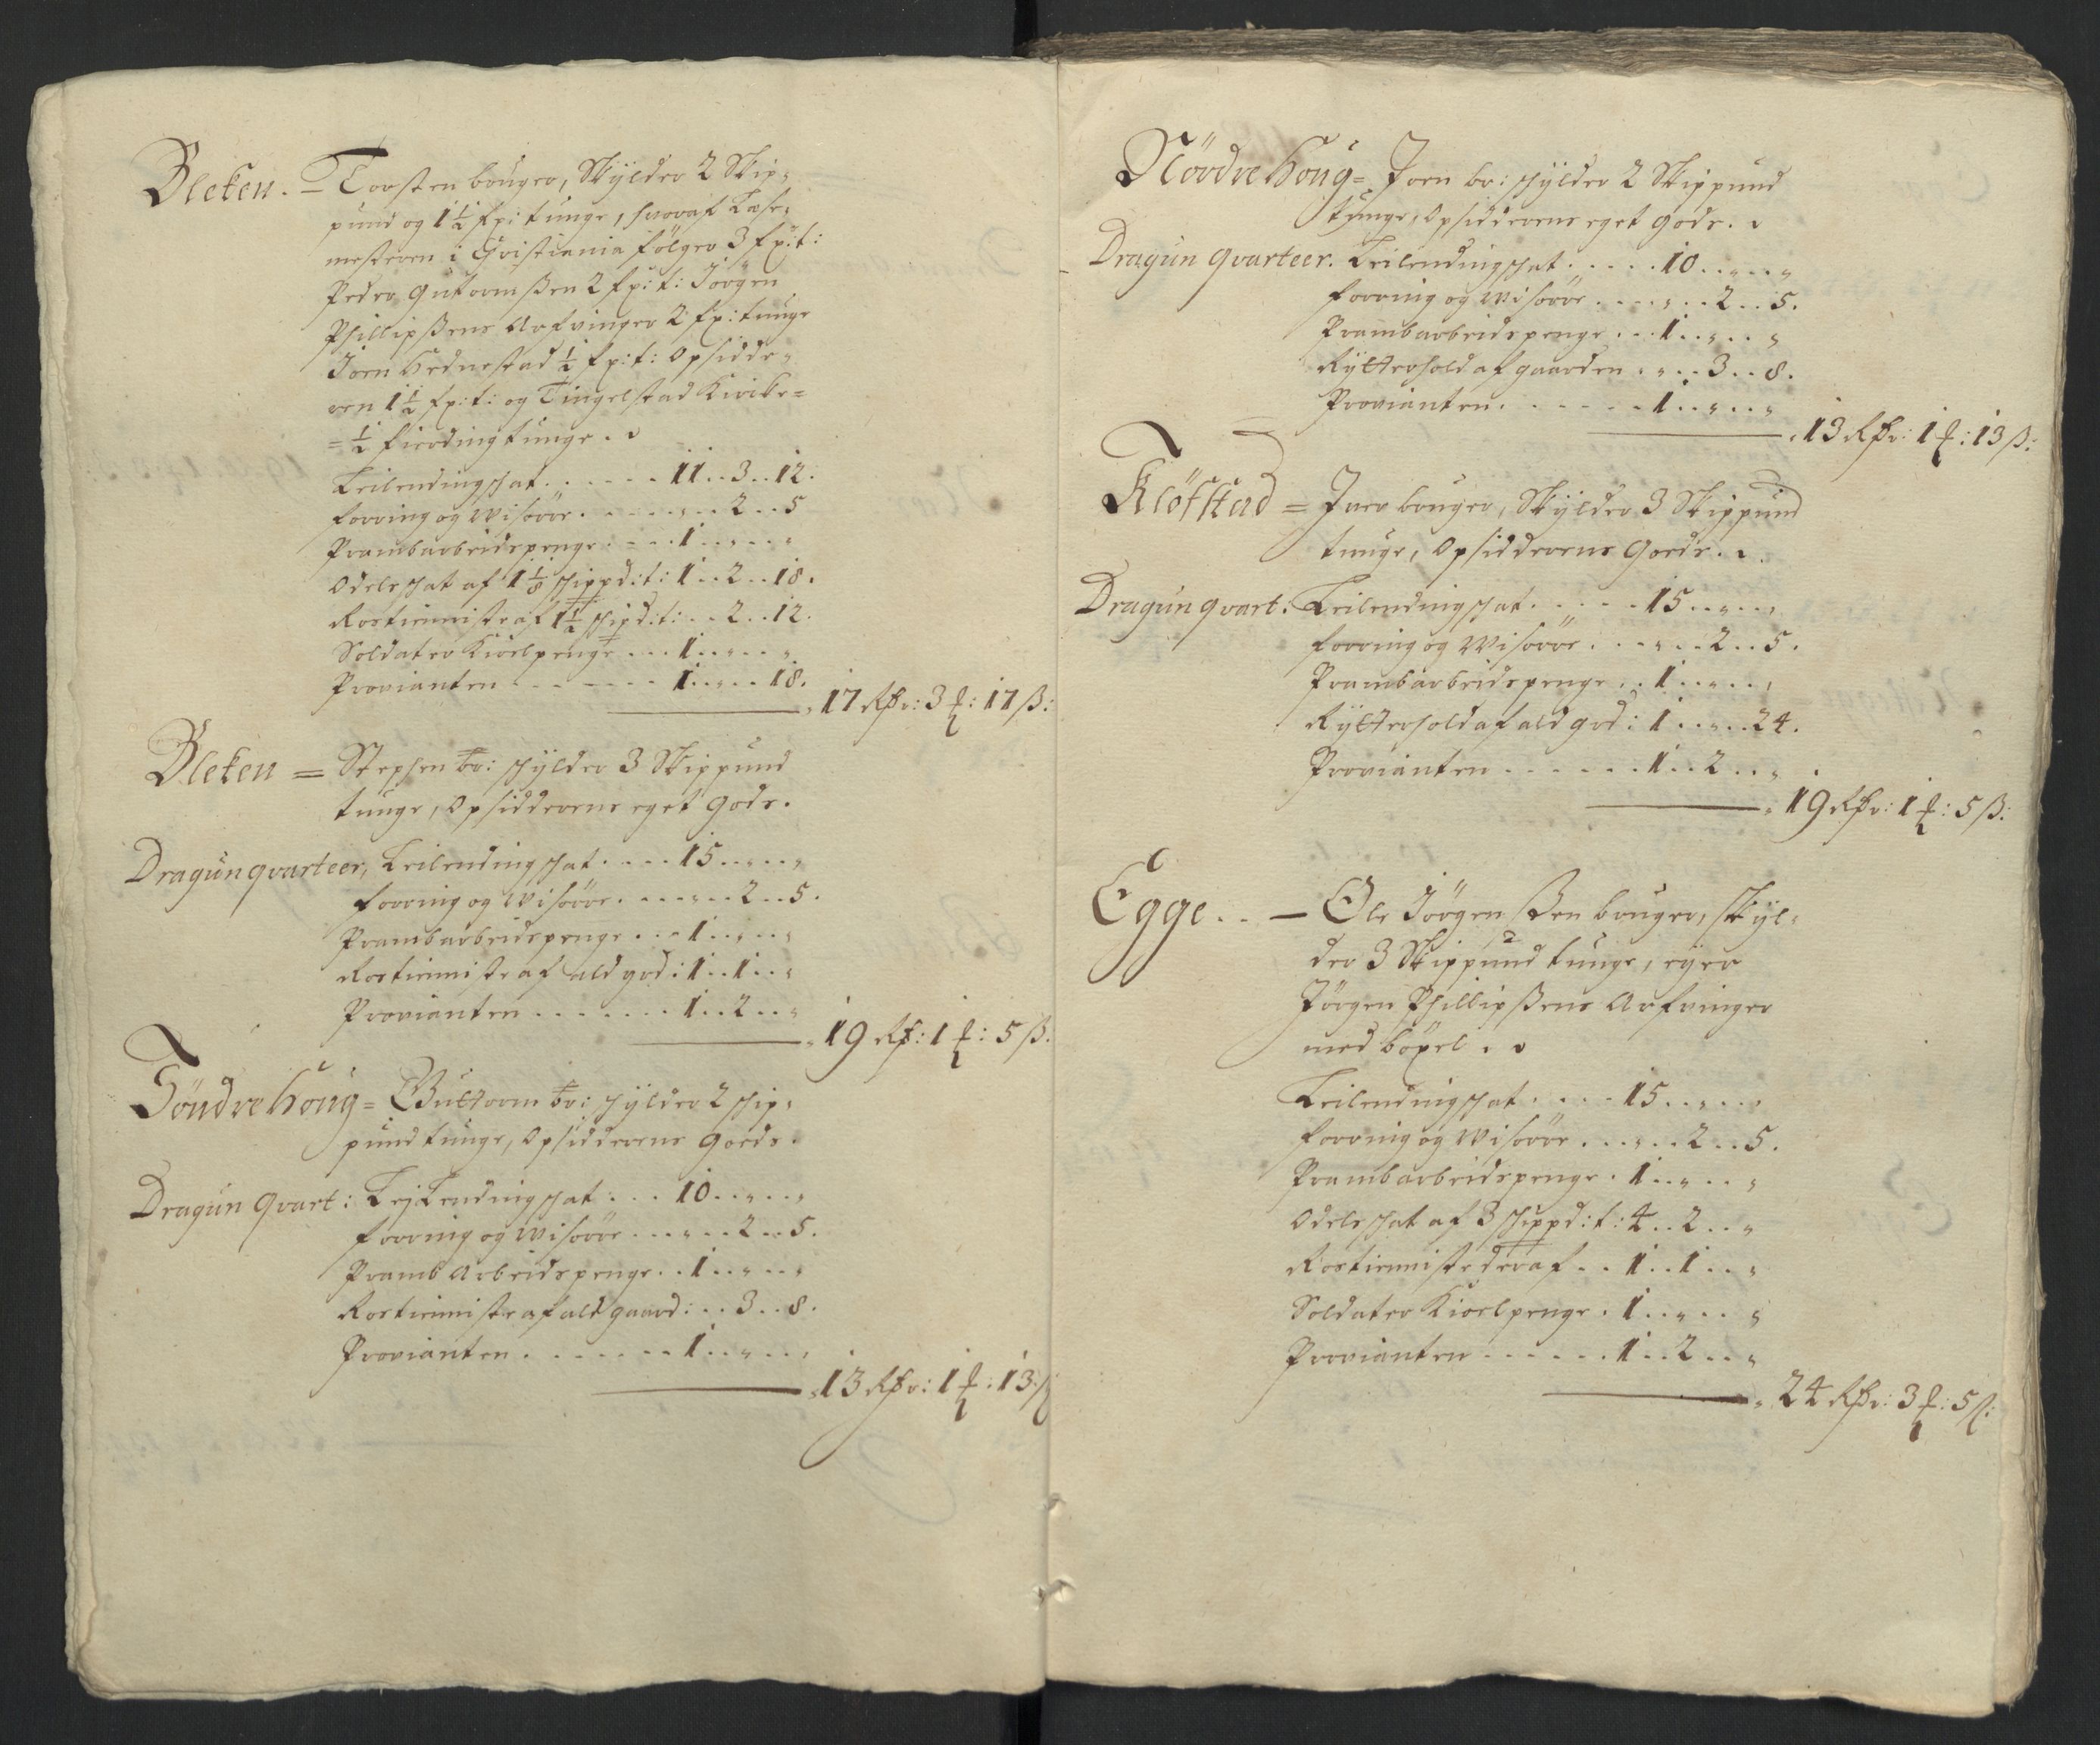 Bleken. – Torsten bruger, Skylder 2 Skip-
pund og 1½ fr: tunge, hvoraf Læse-
mesteren i Christiania følger 3 fr: t:
Peder Gutormßen 2 fr: t: Jørgen
Phillipßens Arfvinger 2 fr: tunge
Joen Hednestad ½ fr: t: Opsidde-
ren 1½ fr: t: og Tingelstad Kircke =
= ½ fierding tunge. .
Leilendingschat. . . . . . 11 . . 3 . . 12.
forring og Wisøøre . . . . . „ . . 2 . . 5
Prambarbeidspenge . . . . 1 . . „ . . „
Odelsschat af 1⅛ schippd: t: 1 . . 2 . . 18.
Rostienniste af 1½ schipd: t: . . 2 . . 12.
Soldater Kioelpenge . . . 1 . . „ . . „
Provianten . . . . . . . 1 . . „ . . 18.
17 Rdr: 3 ƒ: 17 ß:
Bleken = Stephen br: schylder 3 Skippund
tunge, Opsidderens eget Gods.
Dragun qvarteer, Leilendingschat . . . . 15 . . „ . . „
forring og Wisøøre . . . . „ . . 2 . . 5.
Prambarbeidspenge . . . 1 . . „ . . „
Rostienniste af ald grd: 1 . . 1 . . „
Provianten . . . . . . . 1 . . 2 . . „
19 Rd: 1 ƒ: 5 ß:
Søndre Houg = Guttorm br: schylder 2 schip-
pund tunge, Opsidderens Goeds.
Dragun qvart: Lejlendingschat . . . 10 . . „ . . „
forring og Wisøøre . . . „ . . 2 . . 5.
Pramb Arbeidspenge . . 1 . . „ . . „
Rostienniste af ald gaard: . . 3 . . 8.
Provianten . . . . . . . 1 . . „ . . „
13 Rdr: 1 ƒ: 13 ß
Nördre Houg = Joen br: schylder 2 Skippund
tunge, Opsidderens eget Gods. .
Dragun qvarteer. Leilendingschat . . . . . 10 . . „ . . „
forring og Wisøøre . . . . „ . . 2 . . 5.
Prambarbeidspenge . . . 1 . . „ . . „
Rytterhold af gaarden . „ . . 3 . . 8.
Provianten . . . . . . . 1 . . „ . . „
13 Rdr: 1 ƒ: 13 ß:
Klöfstad = Iver bruger, Skylder 3 Skippund
tunge, Opsidderens Goeds. .
Dragun qvart: Leilendingschat . . . . . 15 . . „ . . „
forring og Wisøøre . . . „ . . 2 . . 5.
Prambarbeidspenge . . 1 . . „ . . „
Rytterhold af ald grd: 1 . . „ . . 24.
Provianten . . . . . . . 1 . . 2 . . „
19 Rdr: 1 ƒ: 5 ß:
Egge. . – Ole Jörgenßen bruger, skyl-
der 3 Skippund tunge, eyer
Jörgen Phillipßens Arfvinger
med böxel. .
Leilendingschat . . . . 15 . . „ . . „
forring og Wisøøre . . . „ . . 2 . . 5.
Prambarbeidspenge . 1 . . „ . . „
Odelsschat af 3 schippd: t: 4 . . 2 . . „
Rostienniste deraf . . 1 . . 1 . . „
Soldater Kioelpenge . 1 . . „ . . „
Provianten . . . . . . 1 . . 2 . . „
24 Rdr: 3 ƒ: 5 ß: